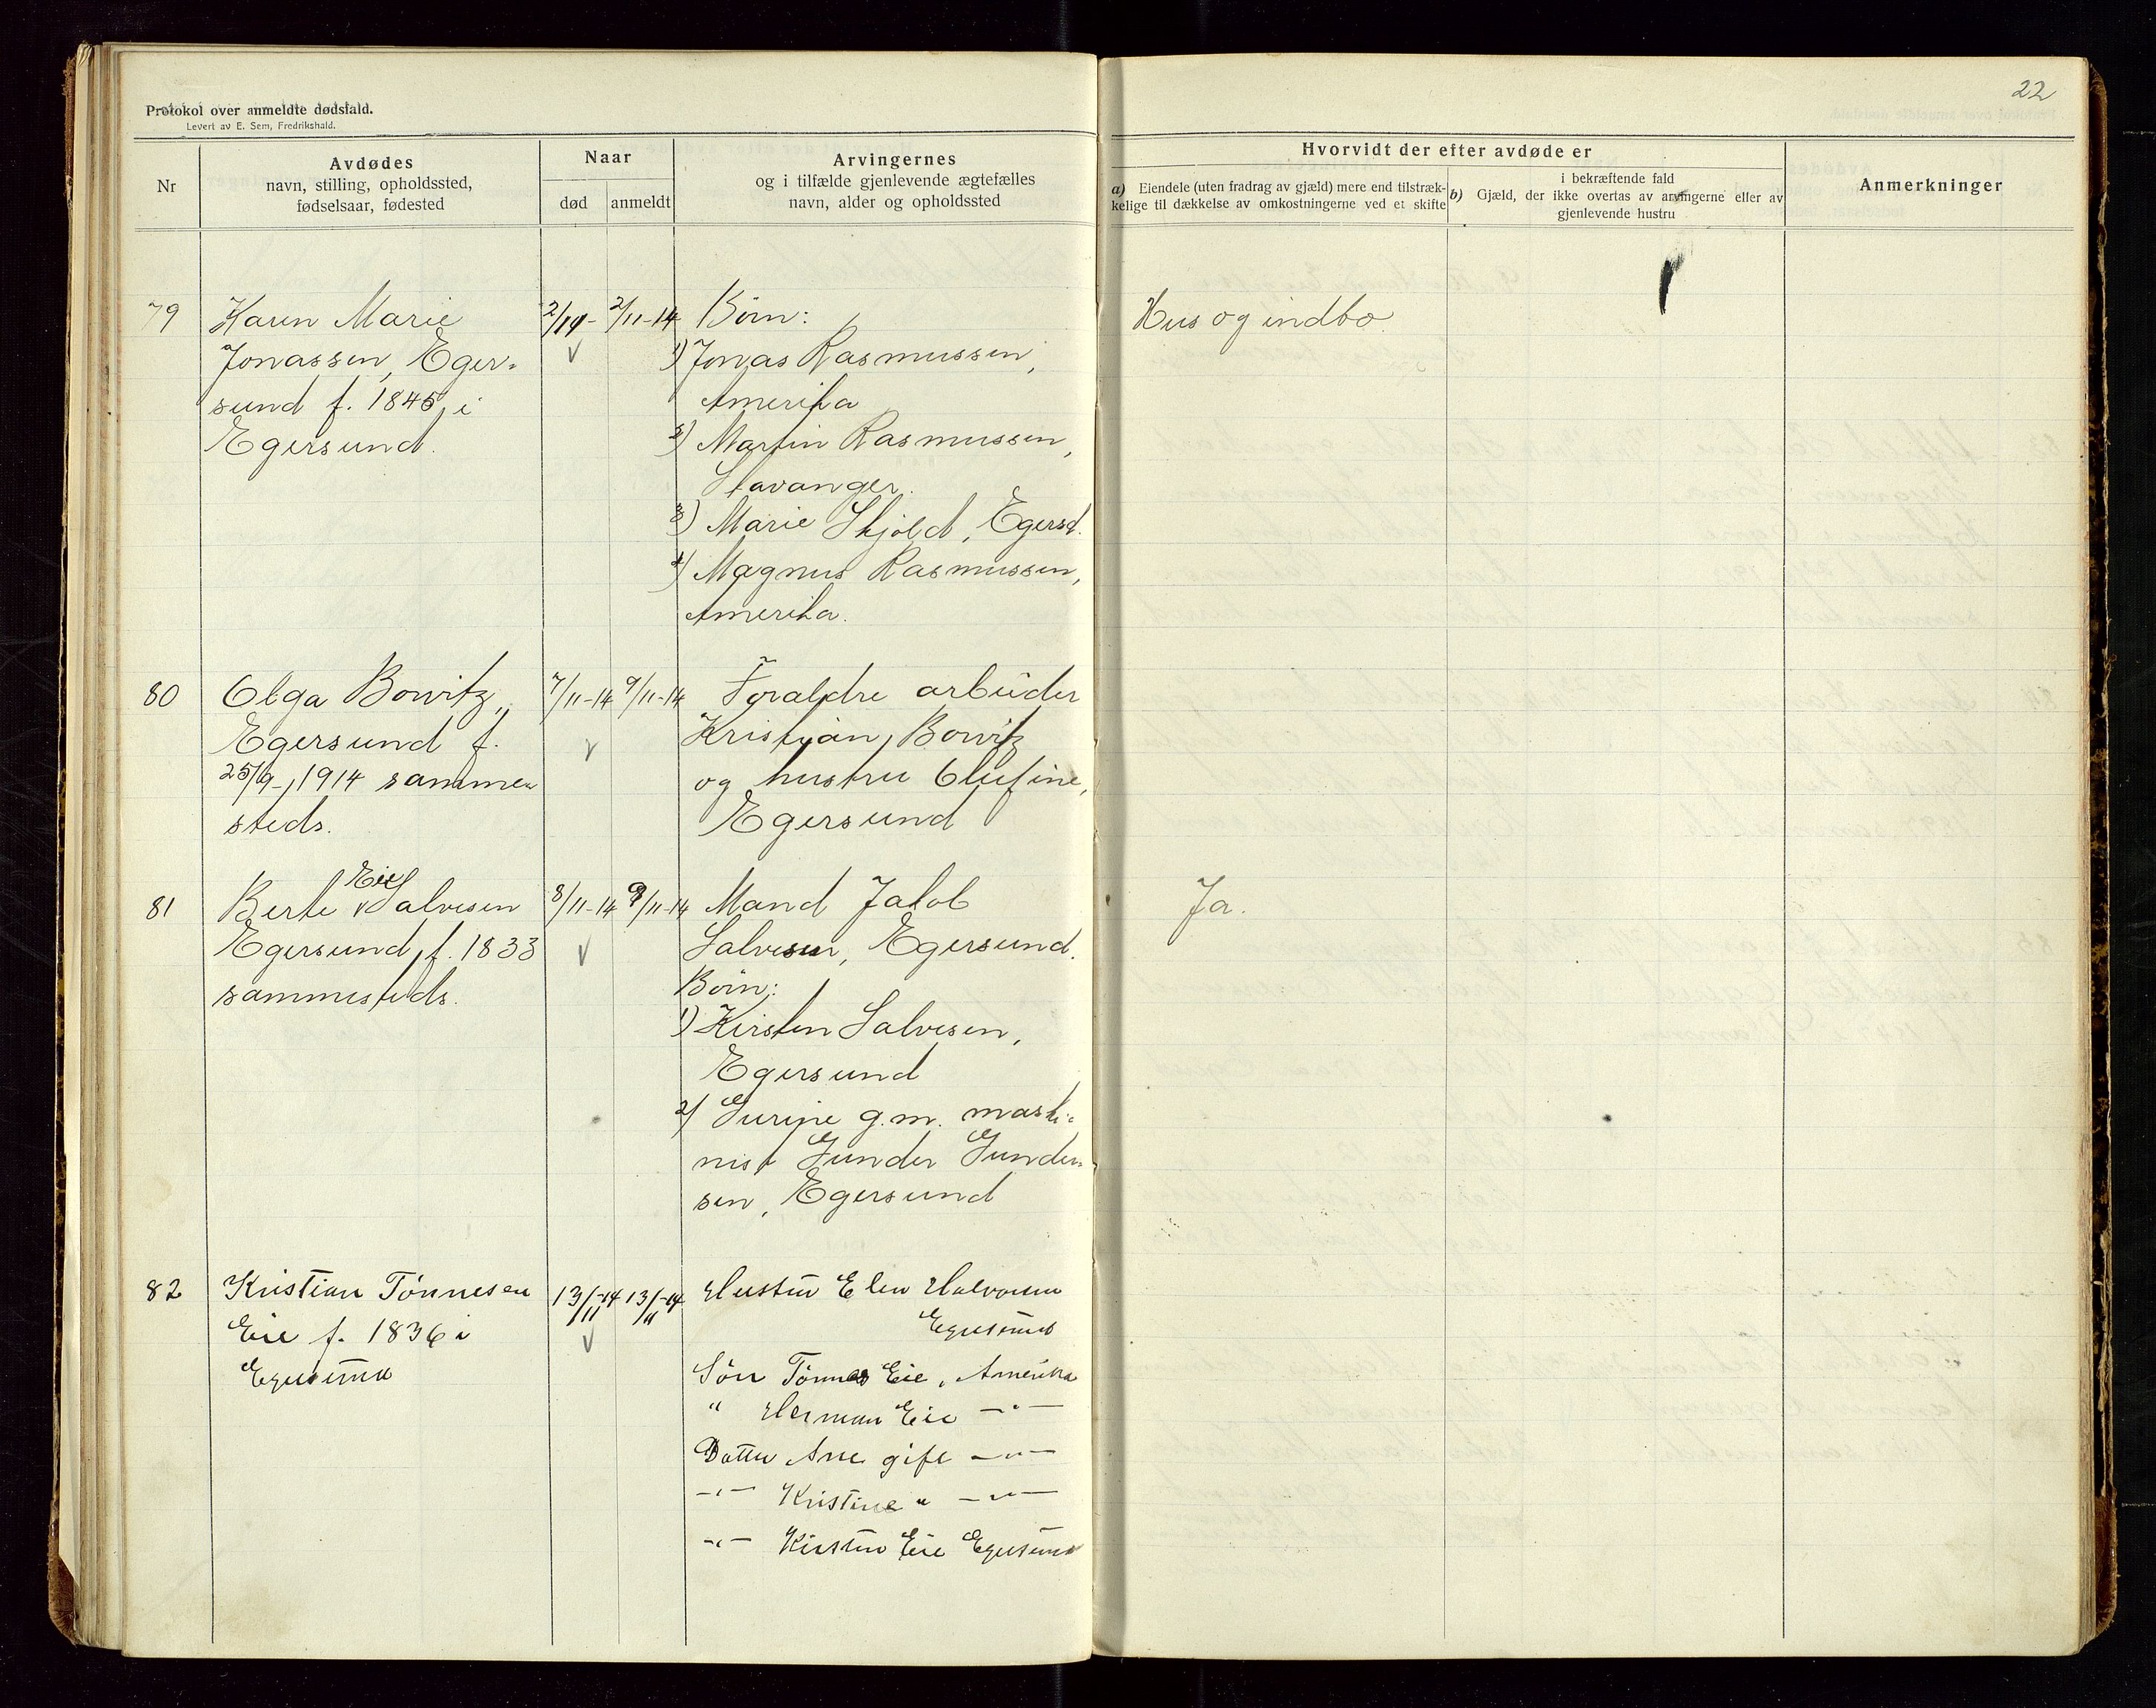 22
Protokol over anmeldte dødsfald.
Levert av E. Sem, Fredrikshald.
Nr
Avdødes
navn, stilling, opholdssted,
fødselsaar, fødested
Naar
død
anmeldt
Arvingernes
og i tilfælde gjenlevende ægtefælles
navn, alder og opholdssted
Hvorvidt der efter avdøde er
a) Eiendele (uten fradrag av gjæld) mere end tilstræk-
kelige til dækkelse av omkostningerne ved et skifte
i bekræftende fald
b) Gjæld, der ikke overtas av arvingerne eller av
gjenlevende hustru
Anmerkninger
79
Karen Marie
Jonassen, Eger-
sund f. 1845, i
Egersund.
2/11-14
Børn:
1) Jonas Rasmussen,
Amerika
2) Martin Rasmussen,
Stavanger.
3) Marie Skjold, Egersd.
4) Magnus Rasmussen,
Amerika.
Hus og indbo.
80
Olga Bowitz,
Egersund f.
25/9-1914 samme
steds.
7/11-14
9/11-14
Foraldre arbeider
Kristian Bowitz
og hustru Olufine,
Egersund
81
Eie
Berte Salvesen
Egersund, f. 1833
sammesteds.
8/11-14
9/11-14
Mand Jakob
Salvesen, Egersund.
Børn:
1) Kirsten Salvesen,
Egersund
2) Gurine g.m. maski-
nist Gunder Gunder-
sen, Egersund
Ja.
82
Kristian Tönnesen
Eie f. 1836 i
Egersund
13/11-14
13/11-14
Hustru Elen Halvorsen
Egersund
Sön Tönnes Eie, Amerika
" Herman Eie —"—
Datter Ane gift —"—
—"— Kristine " —"—
—"— Kirsten Eie Egersund